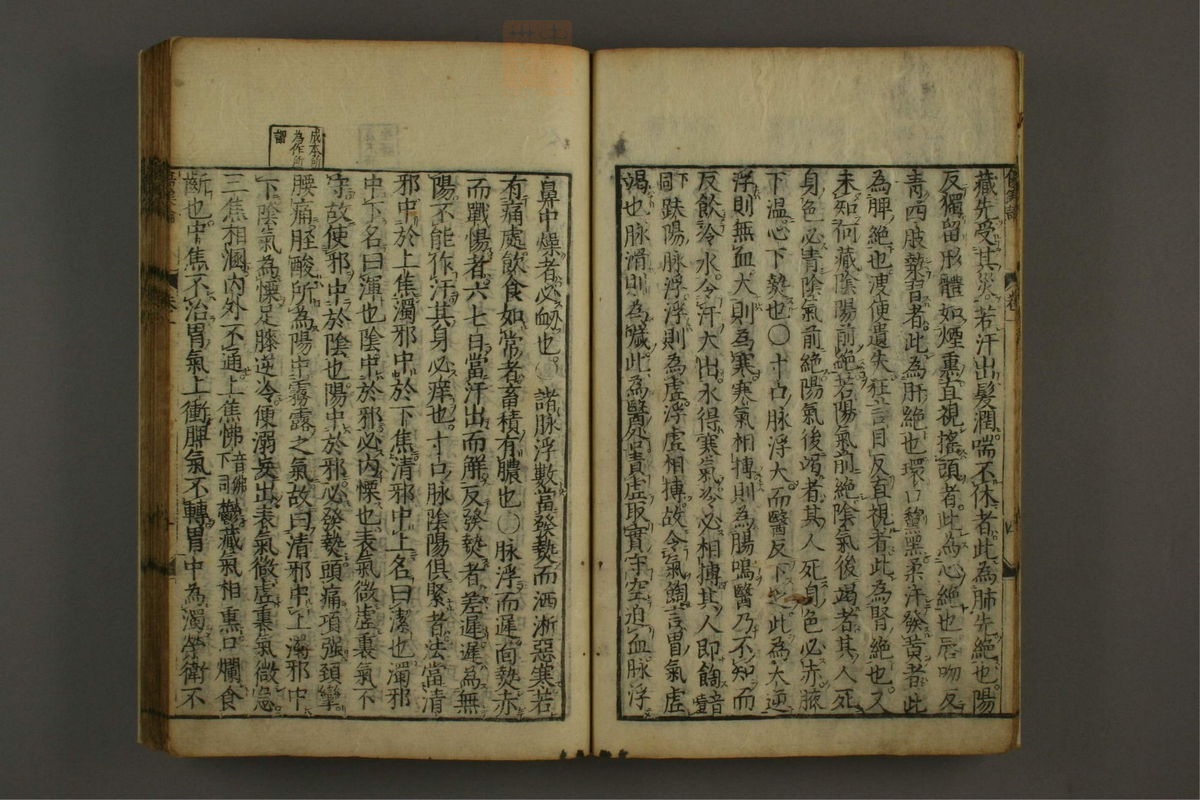 藏先受其災若汗出髮潤喘不休者此為肺先絶也陽
反獨留形體如煙熏直視搖頭者此為心絶也唇吻反
青四肢漐習者此為肝絶也環口黧黑柔汗發黃者此
為脾絶也溲便遺失狂言目反直視者此為腎絶也又
未知何藏陰陽前絶若陽氣前絶陰氣後竭者其人死
身色必青陰氣前絶陽氣後竭者其人死身色必赤腋
下温心下熱也〇寸口脉浮大而醫反下之此為大逆
浮則無血大則為寒寒氣相搏則為腸鳴醫乃不知而
反飲冷水令汗大出水得寒氣冷必相搏其人即䭇音噎
下同趺陽脉浮浮則為虛浮虛相搏故令氣䭇言胃氣虛
竭也脉滑則為噦此為醫咎責虛取實守空迫血脉浮
鼻中燥者必衂也〇諸脉浮數當發熱而洒淅惡寒若
有痛處飲食如常者畜積有膿也〇脉浮而遲面熱赤
而戰惕者六七日當汗出而解反發熱者差遲遲為無
陽不能作汗其身必痒也寸口脉陰陽俱緊者法當清
邪中於上焦濁邪中於下焦清邪中上名曰潔也濁邪
中下名曰渾也陰中於邪必内慄也表氣微虛裏氣不
守故使邪中於陰也陽中於邪必發熱頭痛項强頸攣
腰痛脛酸所為陽中霧露之氣故曰清邪中上濁邪中
下陰氣為慄足膝逆冷便溺妄出表氣微虛裏氣微急
三焦相溷内外不通上焦怫音佛下同鬱藏氣相熏口爛食
齗也中焦不治胃氣上衝脾氣不轉胃中為濁榮衛不
成本前
為作所
謂
卷一